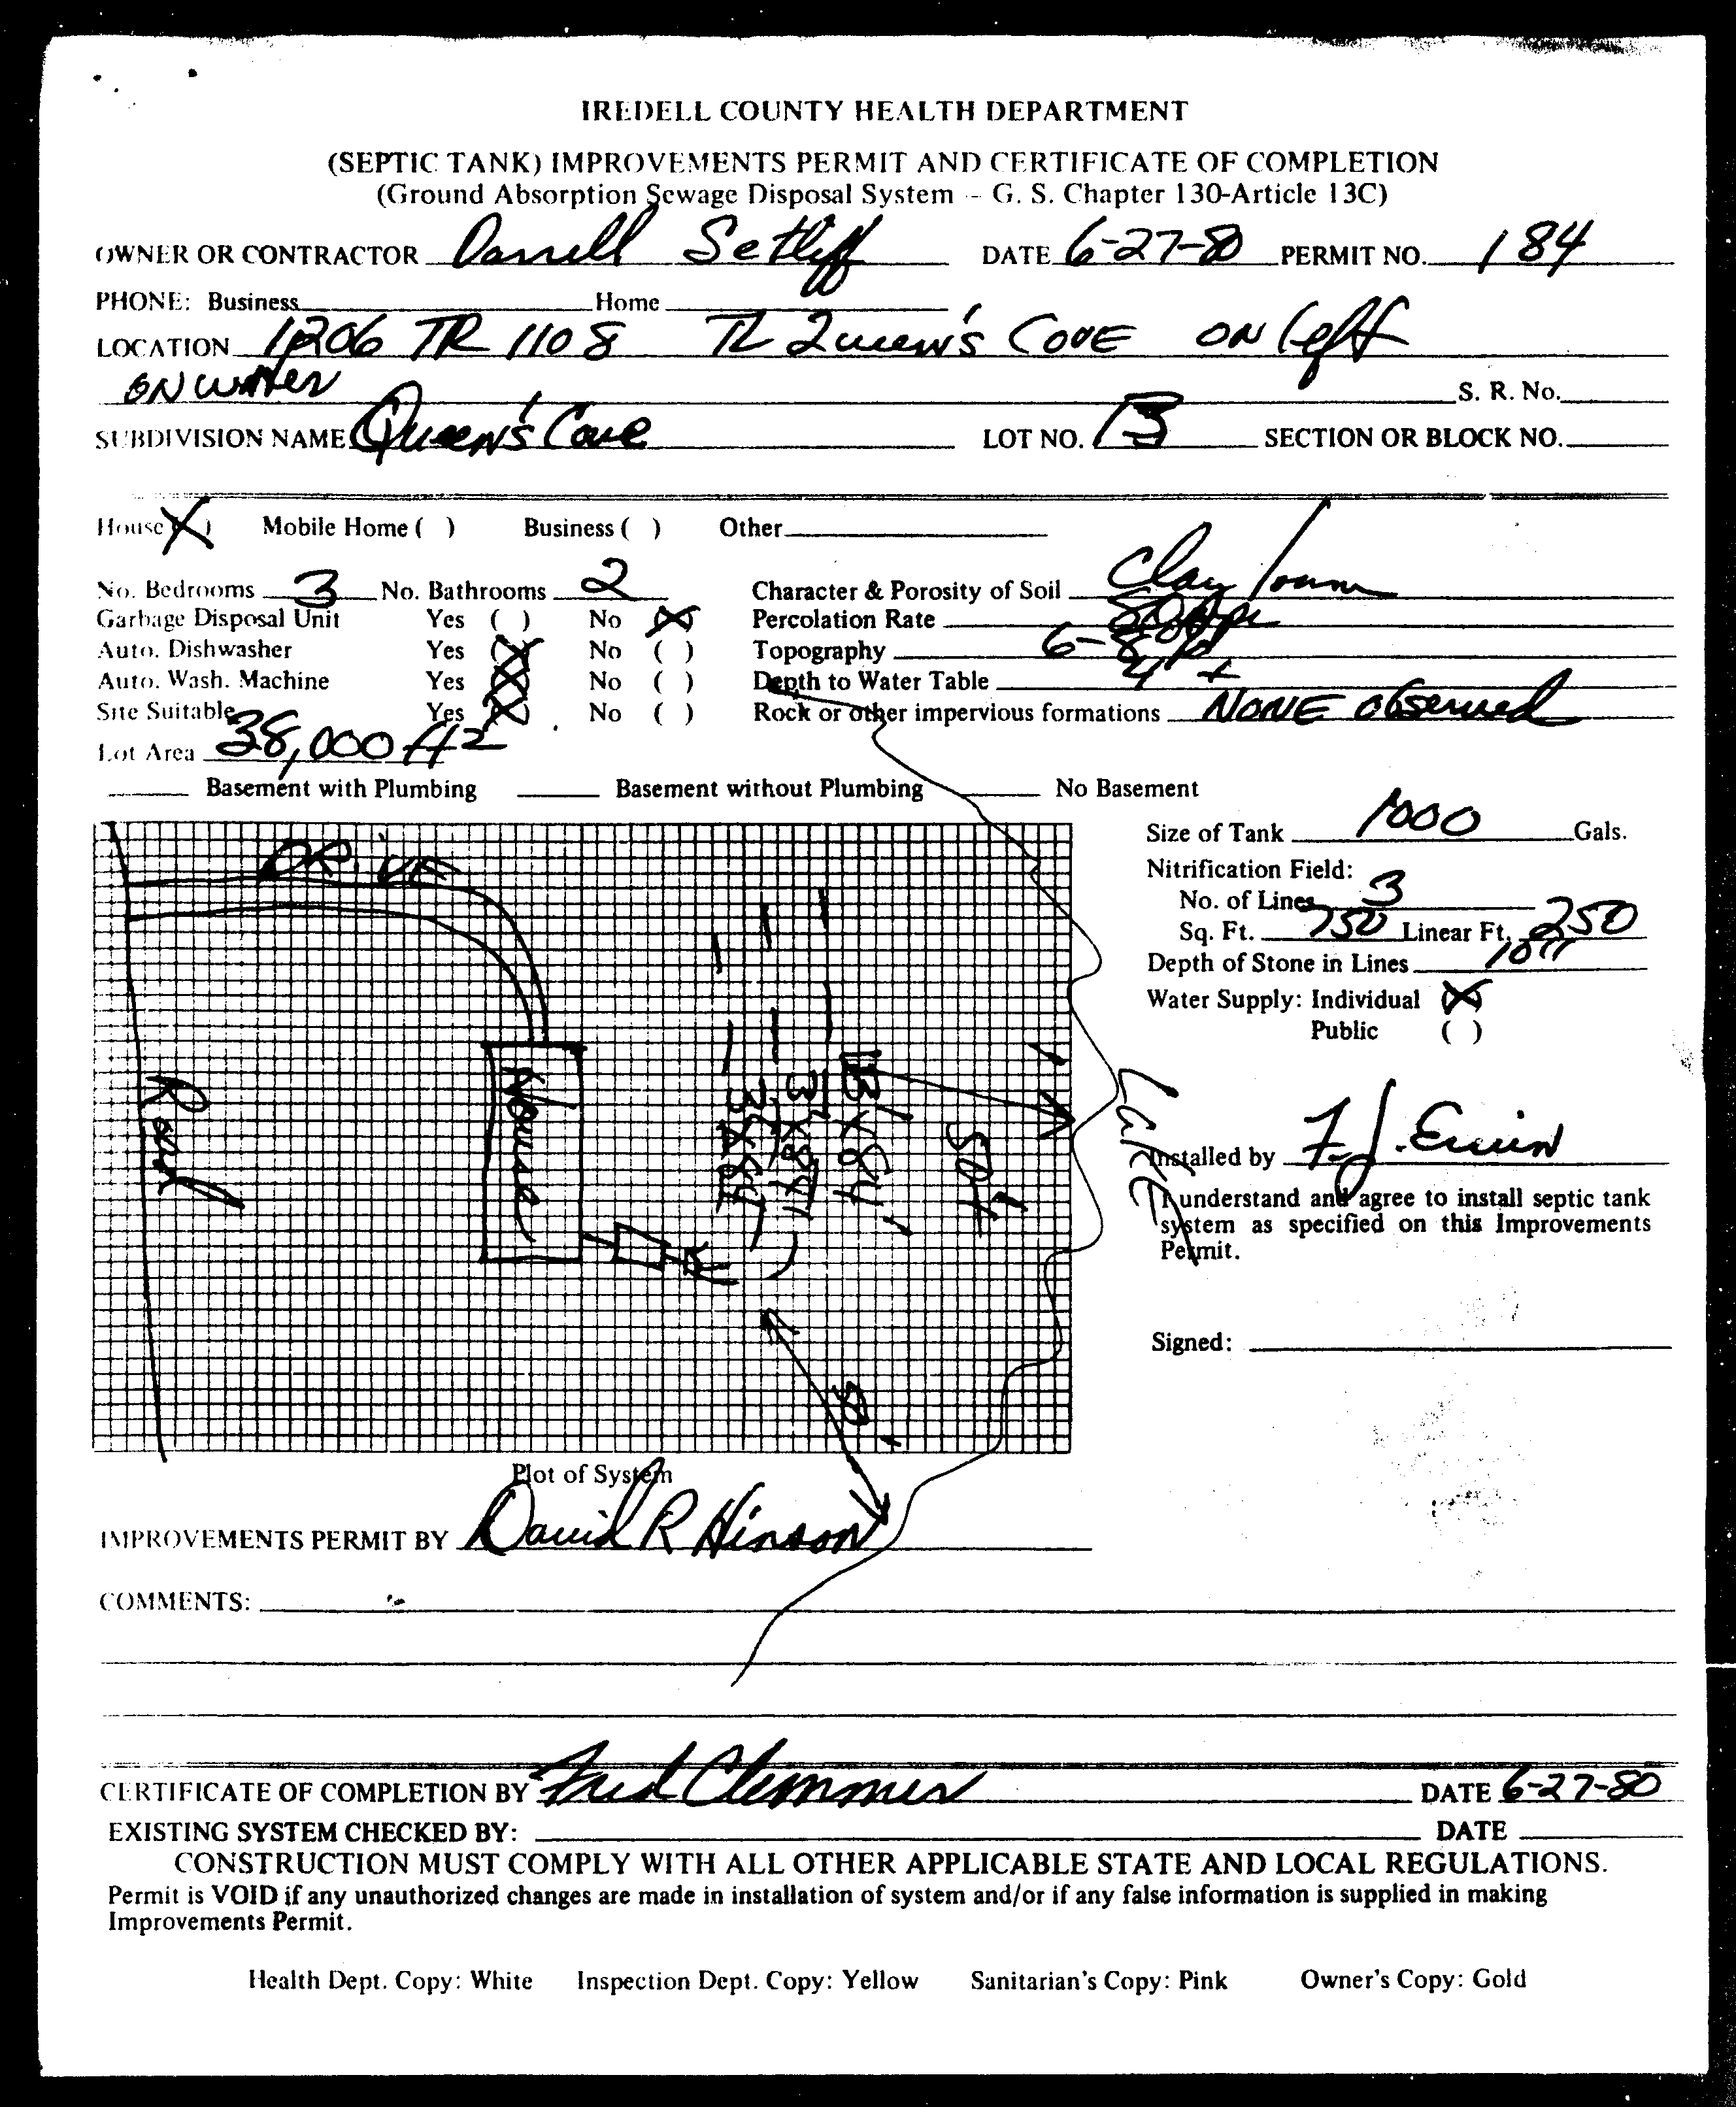 IREDELL COUNTY HEALTH DEPARTMENT
(SEPTIC TANK) IMPROVEMENTS PERMIT AND CERTIFICATE OF COMPLETION
(Ground Absorption Sewage Disposal System -- G. S. Chapter 130-Article 13C)
OWNER OR CONTRACTOR Darrell Setliff DATE 6-27-80 PERMIT NO. 184
PHONE: Business Home
LOCATION 1206 TR 1108 TL Queen's Cove ON left
ON water S. R. No.
SUBDIVISION NAME Queen's Cove LOT NO. 13 SECTION OR BLOCK NO.
House (X) Mobile Home ( ) Business ( ) Other
No. Bedrooms 3 No. Bathrooms 2 Character & Porosity of Soil Clay loam
Garbage Disposal Unit Yes ( ) No (X) Percolation Rate
Auto. Dishwasher Yes (X) No ( ) Topography 6-8%
Auto. Wash. Machine Yes (X) No ( ) Depth to Water Table 4' +
Site Suitable Yes (X) No ( ) Rock or other impervious formations NONE observed
Lot Area 38,000 ft2
Basement with Plumbing Basement without Plumbing No Basement
Size of Tank 1000 Gals.
Nitrification Field:
No. of Lines 3
Sq. Ft. 750 Linear Ft. 250
Depth of Stone in Lines 10"
Water Supply: Individual (X)
Public ( )
DRIVE
Road
House
3'X84'
3'X84'
3'X84'
50+'
Lake
Installed by F. J. Erwin
I understand and agree to install septic tank
system as specified on this Improvements
Permit.
Signed:
Plot of System
IMPROVEMENTS PERMIT BY David R Hinson
COMMENTS:
CERTIFICATE OF COMPLETION BY Fred Clemmer DATE 6-27-80
EXISTING SYSTEM CHECKED BY: DATE
CONSTRUCTION MUST COMPLY WITH ALL OTHER APPLICABLE STATE AND LOCAL REGULATIONS.
Permit is VOID if any unauthorized changes are made in installation of system and/or if any false information is supplied in making
Improvements Permit.
Health Dept. Copy: White Inspection Dept. Copy: Yellow Sanitarian's Copy: Pink Owner's Copy: Gold